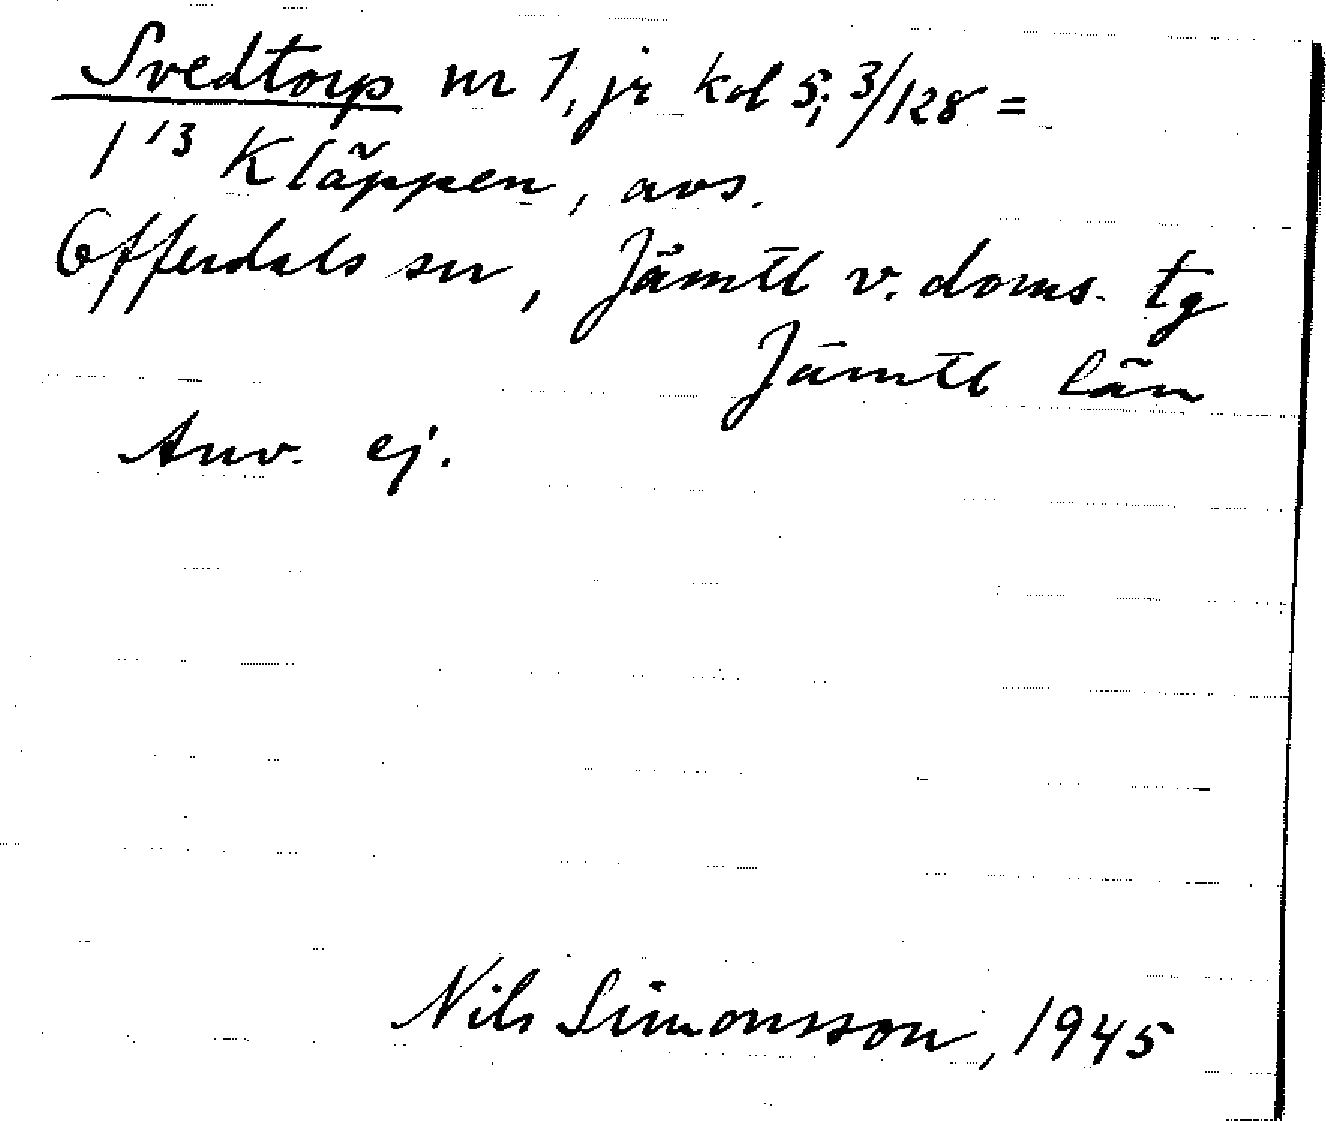 Svedtorp nr 1, jr kol 5; 3/128 =
1¹³ Kläppen, avs.
Offerdals sn, Jämtl v. doms. tg
Jämtl län
Anv. ej.
Nils Simonsson, 1945